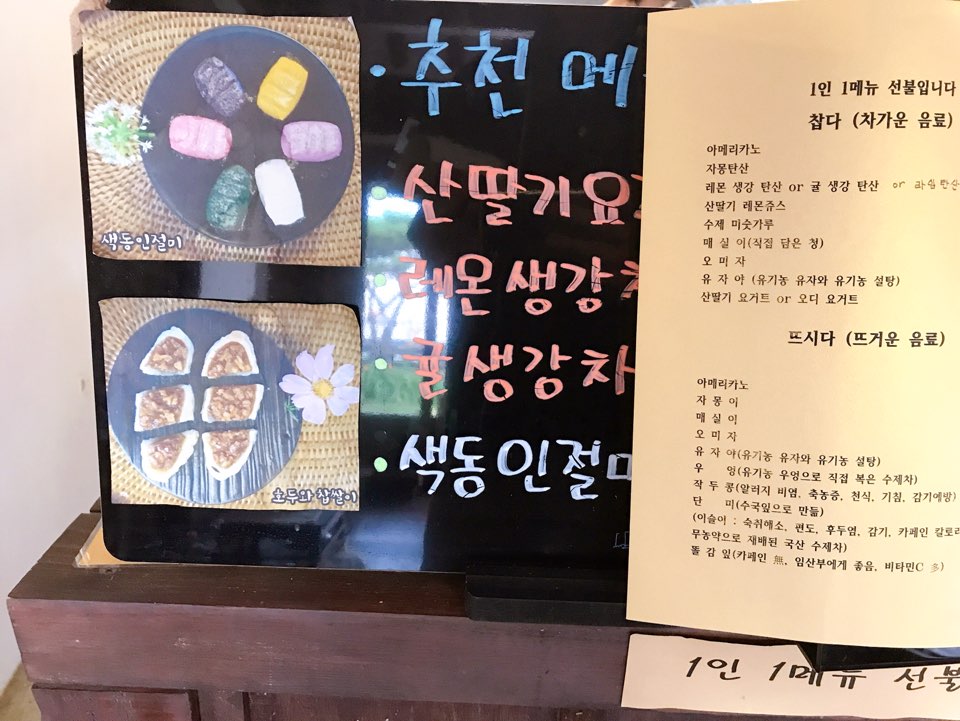 색동인절미
호두와 찹쌀이
· 추천 메
· 산딸기요
· 레몬생강
· 귤생강차
· 색동인절미
1인 1메뉴 선불입니다
찹다 (차가운 음료)
아메리카노
자몽탄산
레몬 생강 탄산 or 귤 생강 탄산 or 라임탄산
산딸기 레몬쥬스
수제 미숫가루
매 실 이(직접 담은 청)
오 미 자
유 자 야 (유기농 유자와 유기농 설탕)
산딸기 요거트 or 오디 요거트
뜨시다 (뜨거운 음료)
아메리카노
자 몽 이
매 실 이
오 미 자
유 자 야(유기농 유자와 유기농 설탕)
우 엉(유기농 우엉으로 직접 볶은 수제차)
작 두 콩(알러지 비염, 축농증, 천식, 기침, 감기예방)
단 미(수국잎으로 만듦)
(이슬이 : 숙취해소, 편도, 후두염, 감기, 카페인 칼로리
무농약으로 재배된 국산 수제차)
똘 감 잎(카페인 無, 임산부에게 좋음, 비타민C 多)
1인 1메뉴 선불